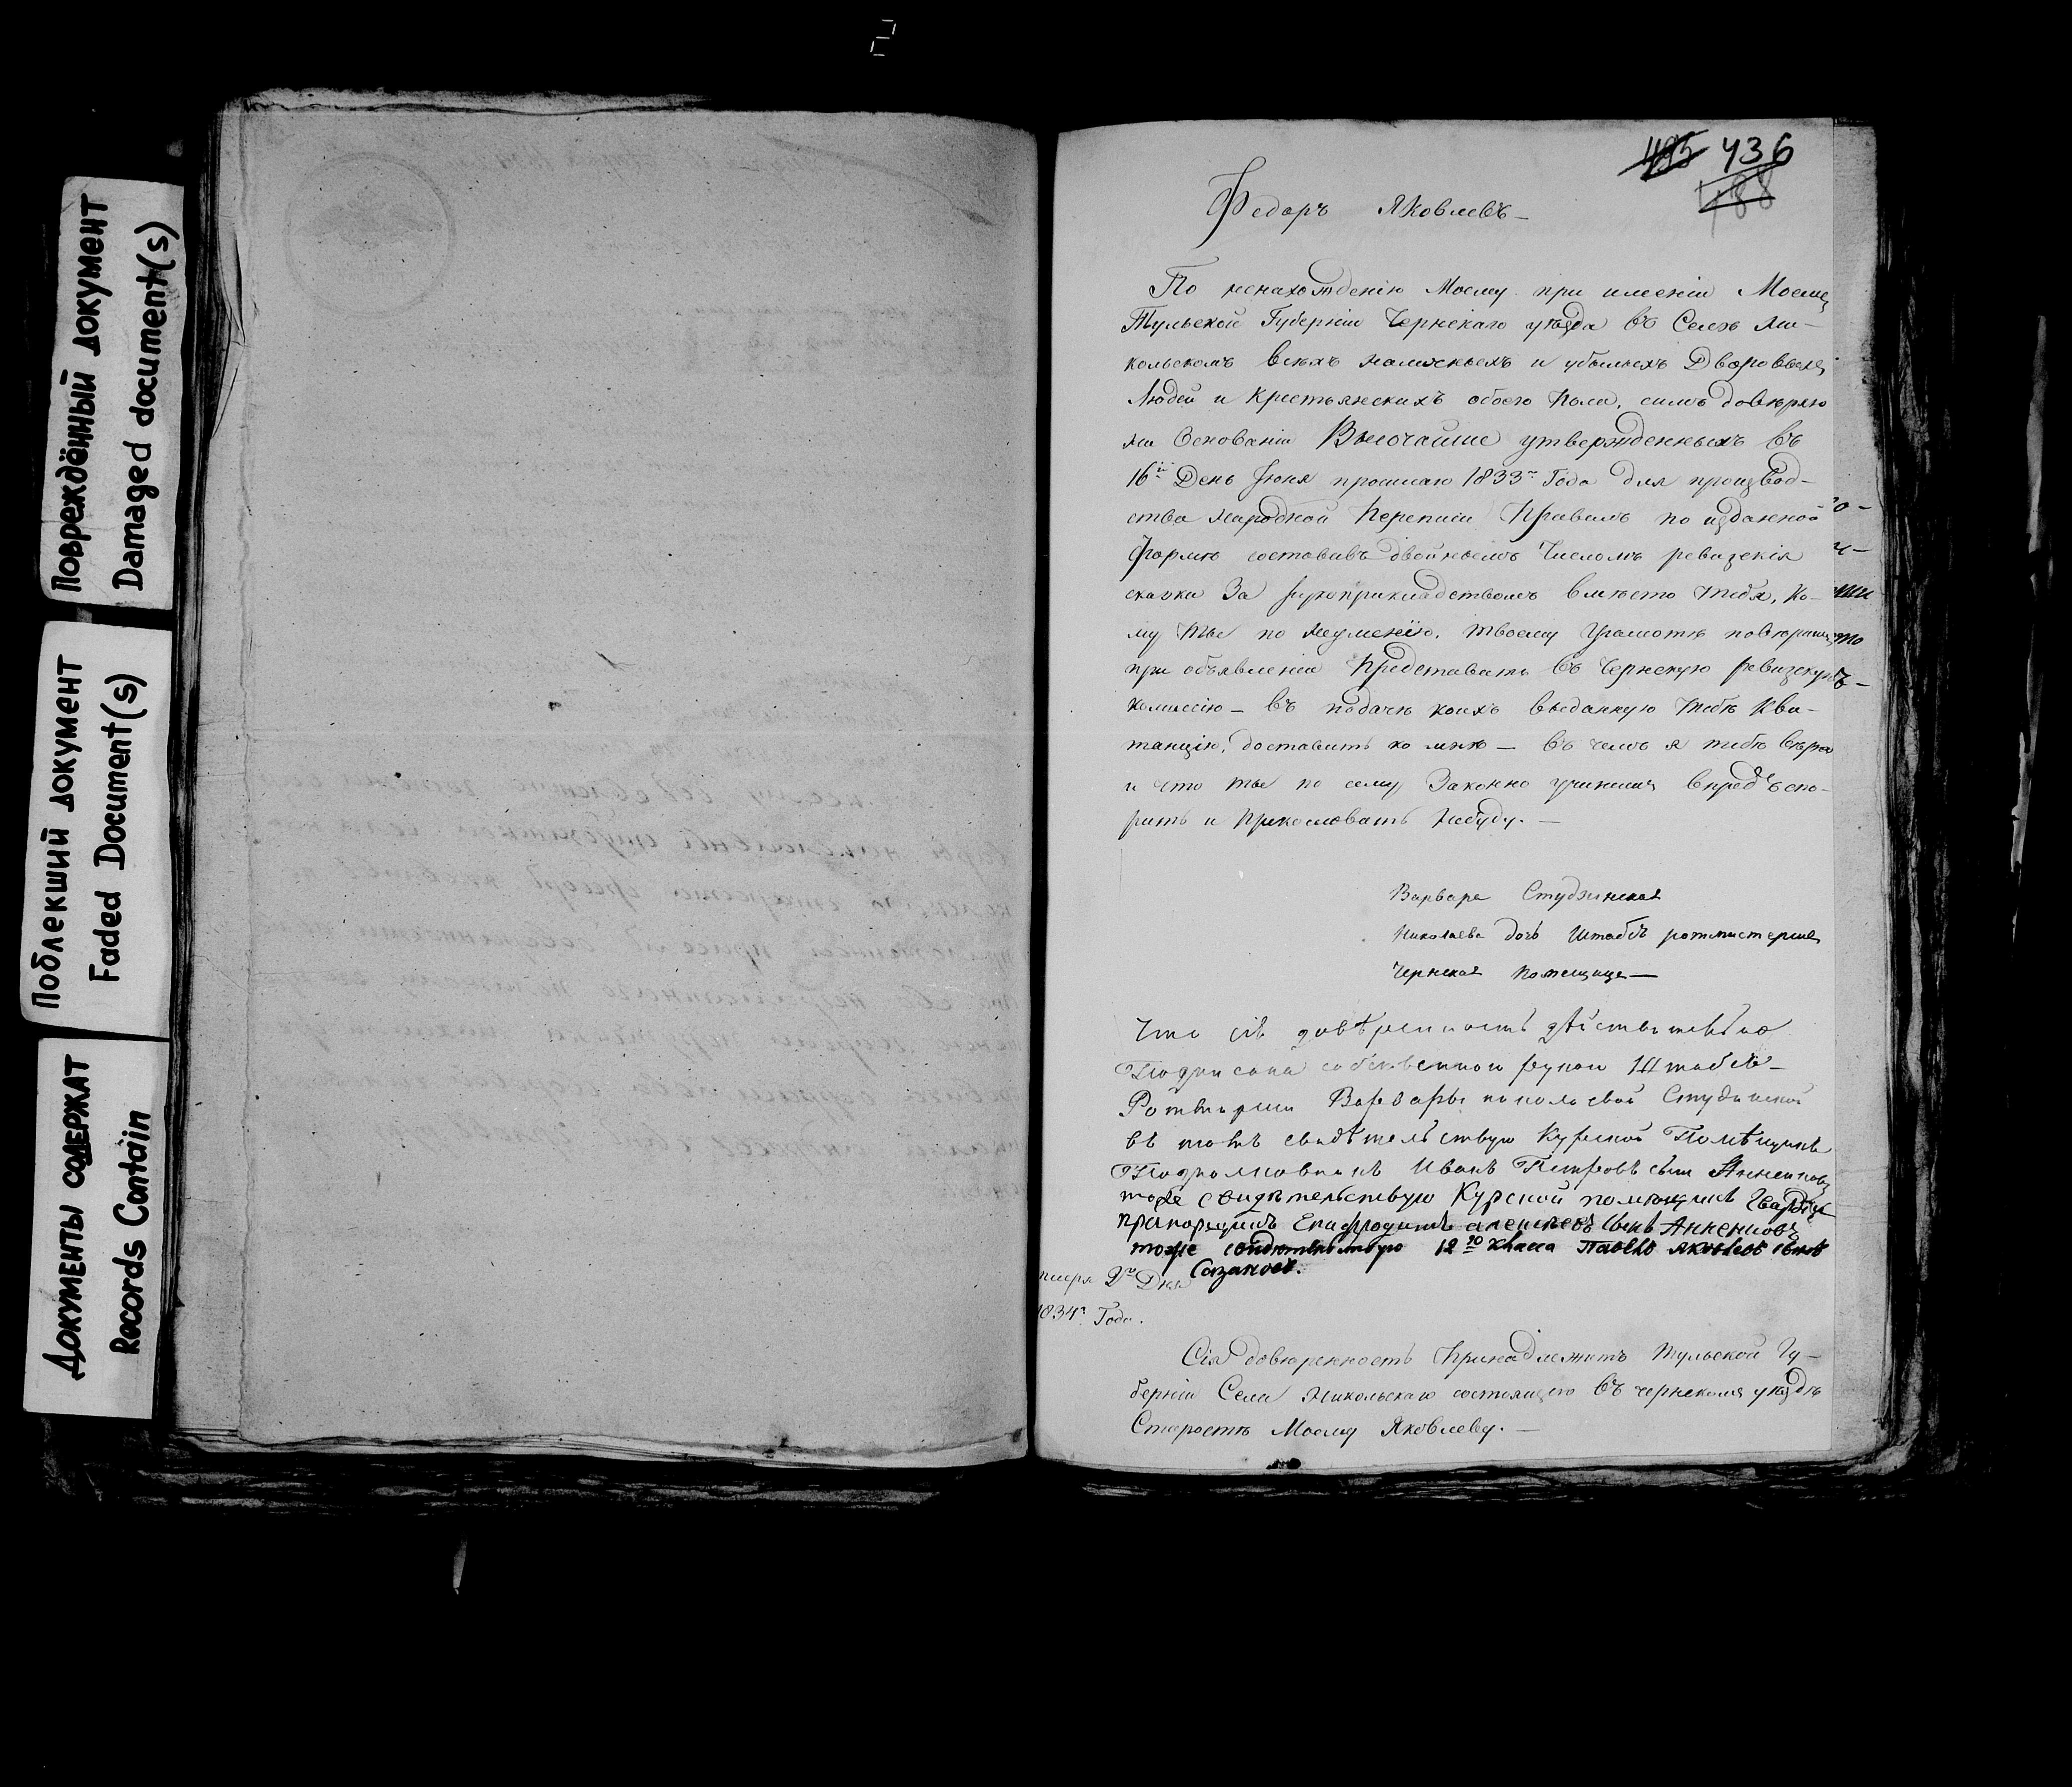 2
Повреждённый документ
Damaged document(s)
Поблекший документ
Faded Document(s)
Документы содержат
Records Contain
485 436
488
Федоръ Яковлевъ —
По ненахожденію Моему при именіи Моемъ
Тульской Губерніи Чернскаго уѣзда въ Селѣ Ни-
кольскомъ всѣхъ наличныхъ и убылыхъ Дворовыхъ
Людей и Крестьянскихъ обоего Пола, симъ довѣряю
на Основаніи Высочайше утвержденныхъ въ
16й День Іюня прошлаго 1833го Года для производ-
ства Народной Переписи Правилъ по изданной
Формѣ составивъ двойнымъ Числомъ ревизскія
сказки За рукоприкладствомъ вмѣсто тебя, Ко-
му ты по неуменію, твоему Грамотѣ повѣришъ
при объявленіи Представить въ Чернскую ревизскую
Комиссію — въ подачѣ коихъ выданную тебѣ Кви-
танцію, доставить ко мнѣ — въ чемъ я тебѣ вѣрю
и что ты по сему Законно учинишъ впредь спо-
рить и Прекословить небуду. —
Варвара Студзинская
Николаева дочь Штабсъ ротмистерша
Чернская Помещица —
Что сія довѣренность дѣйствительно
Подписана собственною рукою Штабсъ-
Ротмирши Варвары николаевой Студзинской
въ томъ свидѣтельствую Курской Помѣщикъ
Подполковникъ Иванъ Петровъ сынъ Анненковъ
тоже свидѣтельствую Курской помѣщикъ Гвардіи
прапорщикъ Епафродитъ алексѣевъ сынъ Анненковъ
тоже свидѣтельствую 12го класса Павелъ яковлевъ сынъ
Сазановъ.
2го Дня
1834го Года.
Сія довѣренность Принадлежитъ Тульской Гу-
берніи Села Никольскаго состоящаго въ чернскомъ уѣздѣ
Старостѣ Моему Яковлеву. —